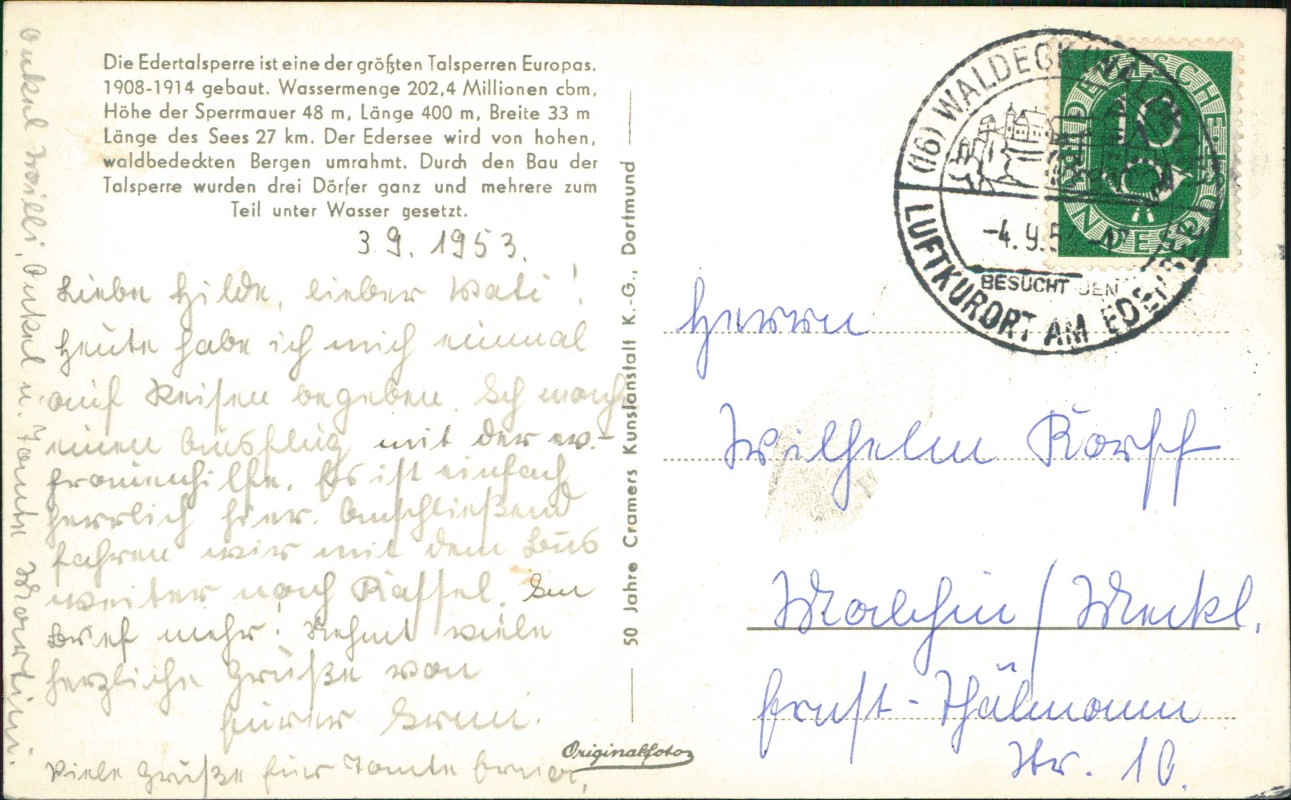 Die Edertalsperre ist eine der größten Talsperren Europas.
1908-1914 gebaut. Wassermenge 202,4 Millionen cbm,
Höhe der Sperrmauer 48 m, Länge 400 m, Breite 33 m
Länge des Sees 27 km. Der Edersee wird von hohen,
waldbedeckten Bergen umrahmt. Durch den Bau der
Talsperre wurden drei Dörfer ganz und mehrere zum
Teil unter Wasser gesetzt.
3.9.1953.
Liebe Hilde, lieber Wali!
Heute habe ich mich einmal
auf Reisen begeben. Ich mache
einen Ausflug mit der ev.-
Frauenhilfe. Es ist einfach
herrlich hier. Anschließend
fahren wir mit dem Bus
weiter nach Kassel. Im
Brief mehr. Nehmt viele
herzliche Grüße von
Eurer
Viele Grüße für Tante Erna,
Onkel Willi, Onkel u. Tante Martin.
50 Jahre Cramers Kunstanstalt K.-G., Dortmund
Originalfoto
(16) WALDECK
-4.9.5
BESUCHT DEN
LUFTKURORT AM EDERSEE
DEUTSCHE BUNDESPOST
10
Herrn
Wilhelm Korff
Malchin / Meckl.
Ernst-Thälmann
Str. 10.